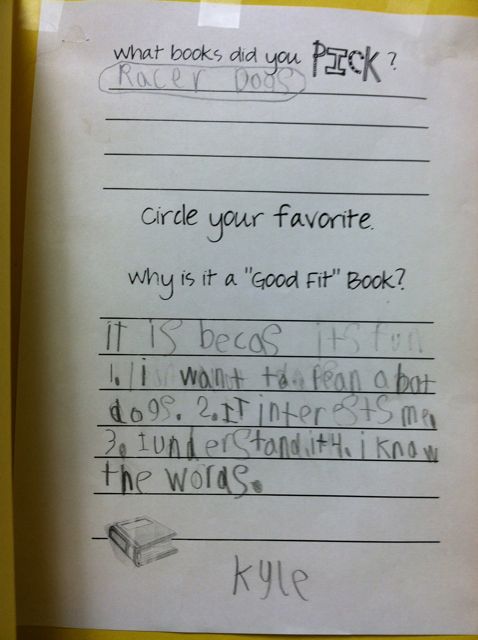 what books did you PICK?
Racer Dogs
Circle your favorite.
Why is it a "Good Fit" Book?
it is becas its fun
1. i want to rean a bot
dogs. 2. IT interests me
3. I understand.it4. i know
the words.
Kyle